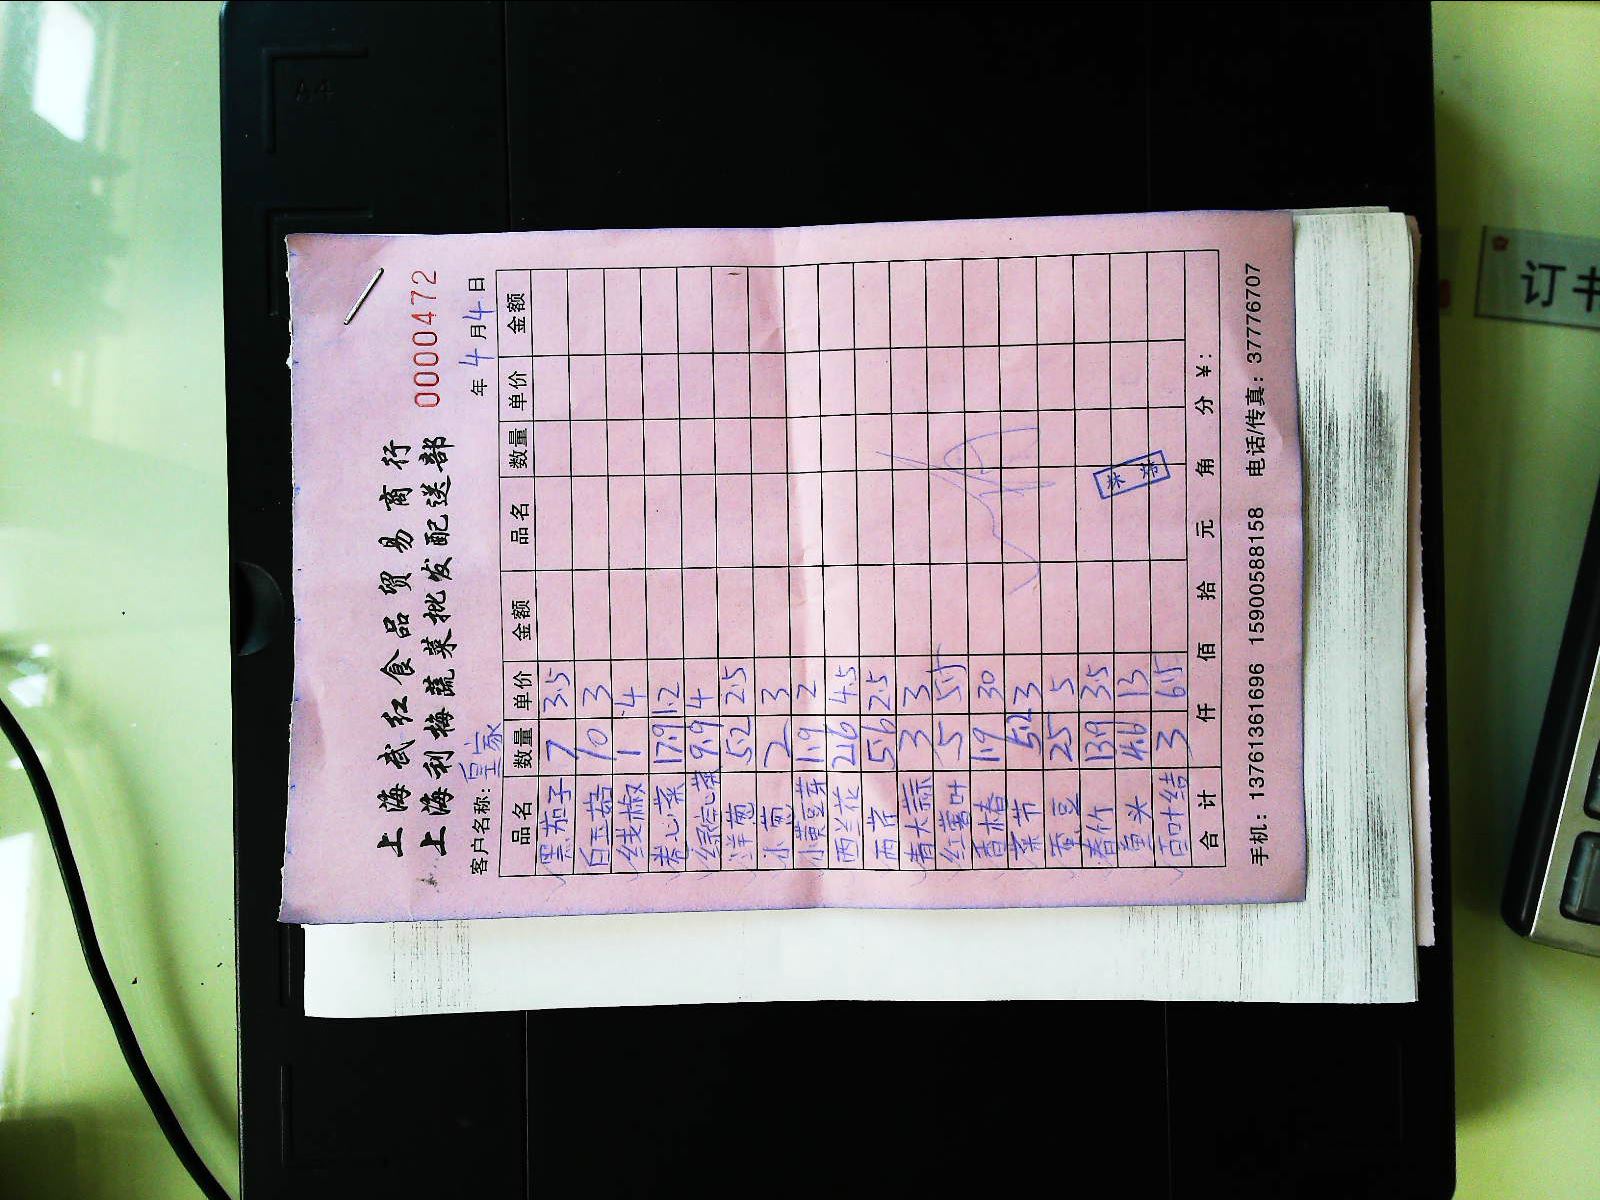 A4
上海武红食品贸易商行
上海利梅蔬菜批发配送部
0000472
客户名称: 皇家 年 4 月 4 日
品名 数量 单价 金额 品名 数量 单价 金额
黑茄子 7 3.5
白玉菇 10 3
线椒 1 4
卷心菜 17.9 1.2
绿气菜 9.9 4
洋葱 52 2.5
小葱 2 3
小黄豆芽 1.9 2
西兰花 26 4.5
西芹 5.6 2.5
青大蒜 3 3
红薯叶 5 5.5
香椿 1.9 30
菜节 5.2 3
蚕豆 25 5
春竹 13.9 3.5
4.6 13
百叶结 3 6.5
合计 仟 佰 拾 元 角 分 ¥:
手机: 13761361696 15900588158 电话/传真: 37776707
订书